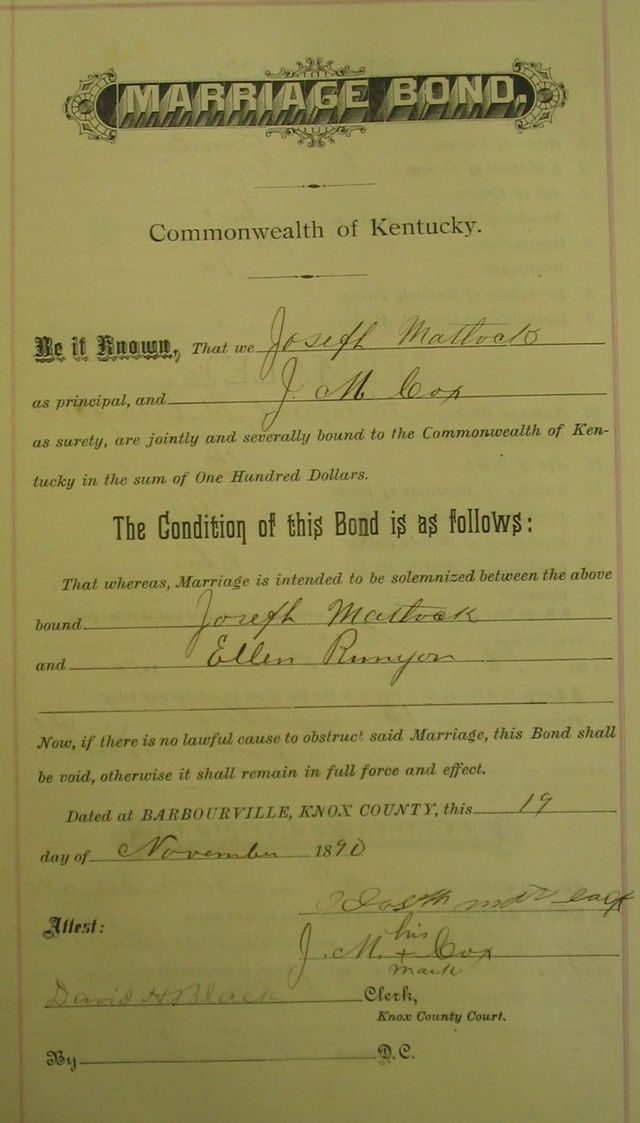 MARRIAGE BOND.
Commonwealth of Kentucky.
Be it Known, That we Joseph Matlock
as principal, and J. M. Cox
as surety, are jointly and severally bound to the Commonwealth of Ken-
tucky in the sum of One Hundred Dollars.
The Condition of this Bond is as follows:
That whereas, Marriage is intended to be solemnized between the above
bound Joseph Matlock
and Ellen Runyon
Now, if there is no lawful cause to obstruct said Marriage, this Bond shall
be void, otherwise it shall remain in full force and effect.
Dated at BARBOURVILLE, KNOX COUNTY, this 19
day of November 1890
Attest:
his
J. M. + Cox
mark
David H Black Clerk,
Knox County Court.
By D.C.